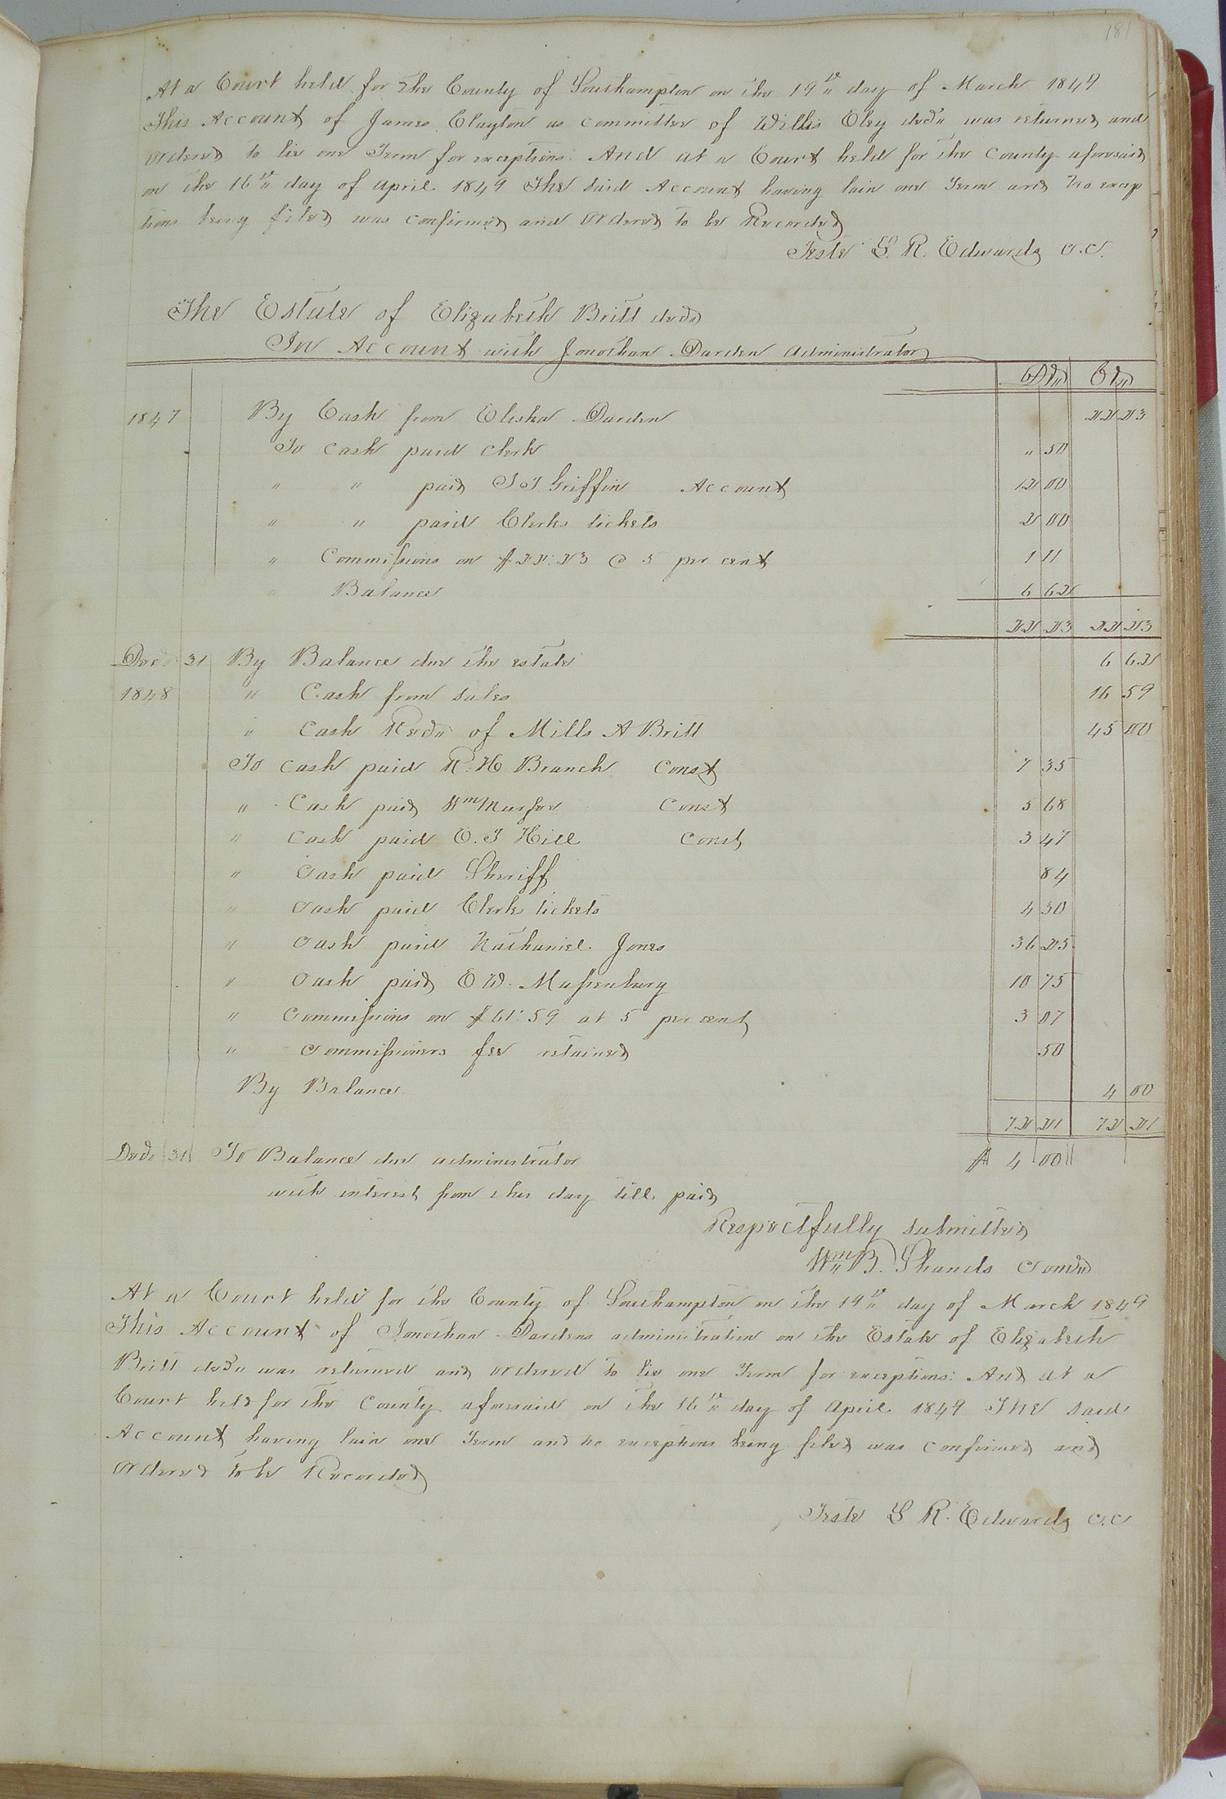 181
At a Court held for the County of Southampton on the 19th day of March 1849
This Account of James Clayton as committee of Willis Eley decd was returned and
ordered to lie one Term for exceptions. And at a Court held for the County aforesaid
on the 16th day of April 1849 The said Account having lain one Term and no excep
tions being filed was confirmed and ordered to be Recorded
Teste L. R. Edwards C.C.
The Estate of Elizabeth Britt decd
In Account with Jonathan Darden Administrator
Dr Cr
1847 By Cash from Elisha Darden 22 23
To cash paid Clerk " 50
" " paid Griffin Account 12 00
" " paid Clerks tickets 2 00
" Commissions on $22.23 @ 5 per cent 1 11
" Balance 6 62
22 23 22 23
Dec 31 By Balance due the estate 6 62
1848 " Cash from sales 16 59
" Cash Recd of Mills A Britt 45 00
To cash paid R. H Branch Const 7 35
" Cash paid Wm Const 5 68
" Cash paid E. T Hill Const 3 47
" Cash paid Sheriff 84
" Cash paid Clerks tickets 4 30
" Cash paid Nathaniel Jones 36 25
" Cash paid E W. Massenburg 10 75
" Commissions on $61.59 at 5 per cent 3 07
" Commissioners fee retained .50
By Balance 4 00
72 21 72 21
Decr 31 To Balance due administrator $ 4 00
with interest from this day till paid
Respectfully submitted
Wm B. Shands Comr
At a Court held for the County of Southampton on the 19th day of March 1849
This Account of Jonathan Dardens administration on the Estate of Elizabeth
Britt decd was returned and ordered to lie one Term for exceptions: And at a
Court held for the County aforesaid on the 16th day of April 1849 The said
Account having lain one Term and no exceptions being filed was confirmed and
ordered to be Recorded
Teste L R. Edwards C.C